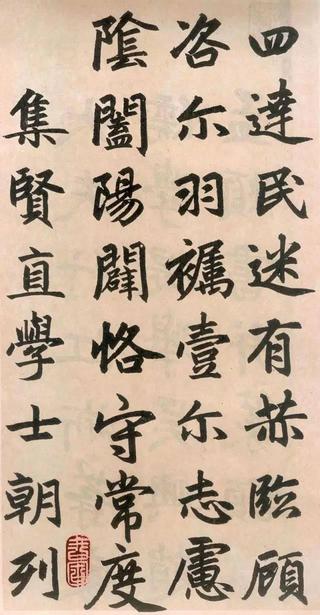 四達民迷有赫臨顧
咨尔羽壹尔志慮
隂闔陽闢恪守常度
集賢直學士朝列